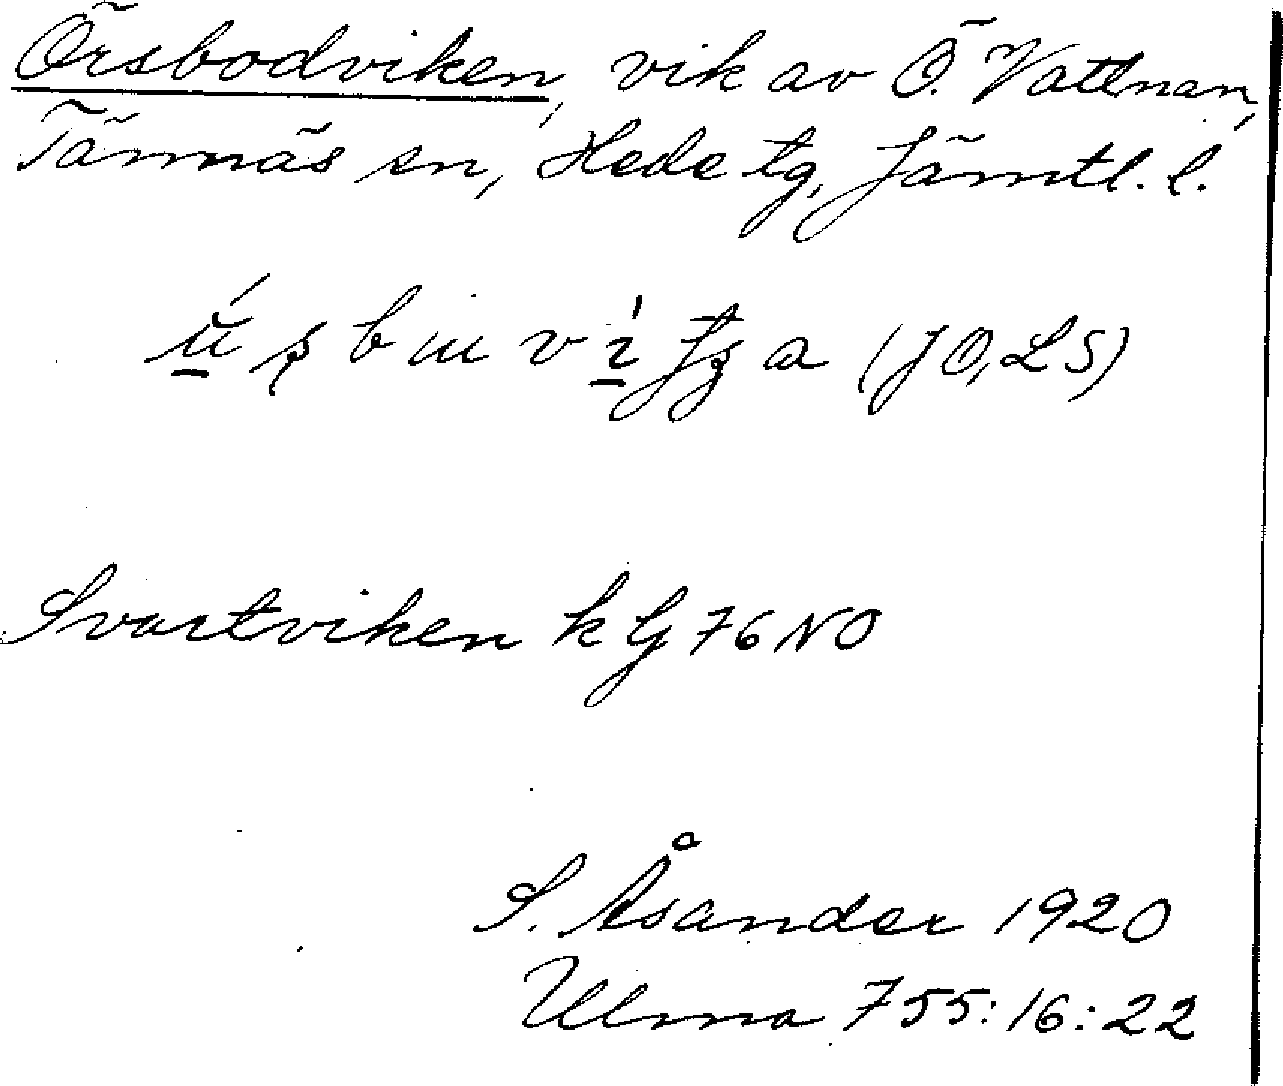 Örsbodviken, vik av Ö. Vattnan,
Tännäs sn, Hede tg, Jämtl. l.
(JO, LS)
Svartviken k G 76 NO
S. Åsander 1920
Ulma 755:16:22